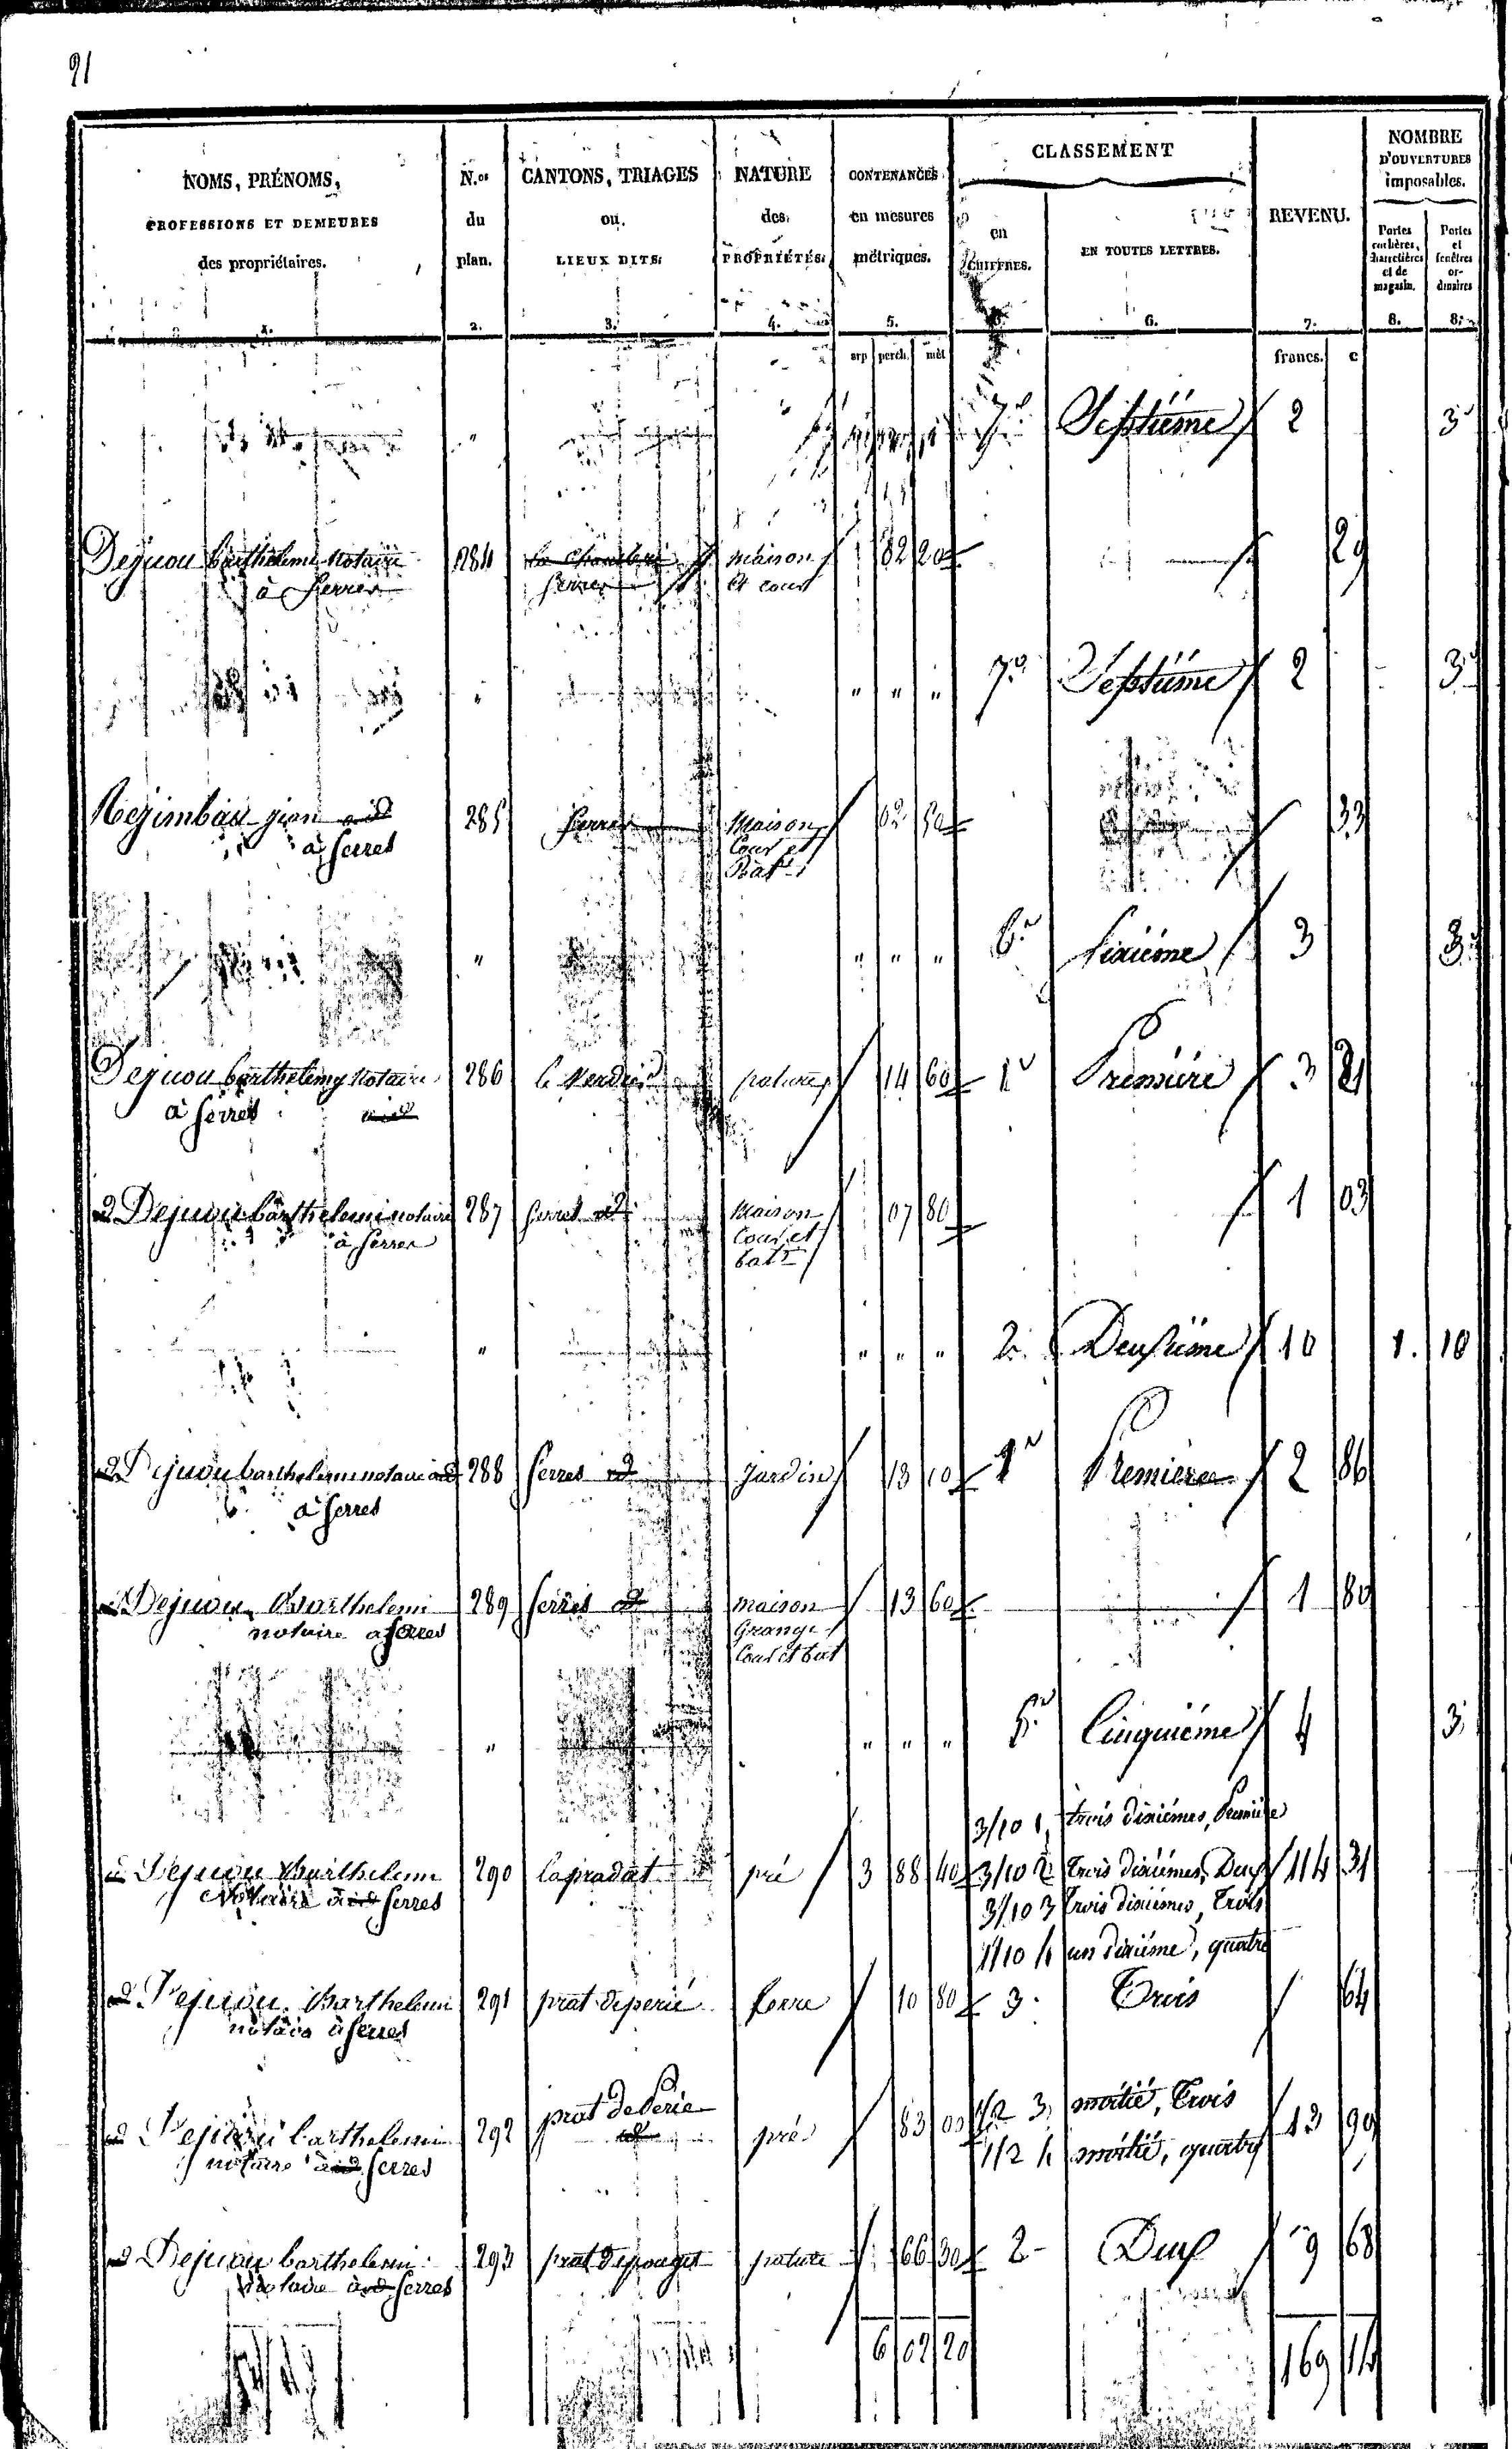 91
NOMS, PRÉNOMS, PROFESSIONS ET DEMEURES des propriétaires.
N.os du plan.
CANTONS, TRIAGES ou LIEUX DITS.
NATURE des PROPRIÉTÉS.
CONTENANCES en mesures métriques.
CLASSEMENT
en CHIFFRES.
EN TOUTES LETTRES.
REVENU.
NOMBRE D'OUVERTURES imposables.
Portes cochères, charretières et de magasin.
Portes et fenêtres ordinaires
1. 2. 3. 4. 5. 6. 7. 8. 8.
arp perch. mèt francs. c
7e Septiéme 2 3
Dejuou barthelemi Notaire 284 maison 02 20 29
à Serres Serres et cour
" " " " 7e Septiéme 2 3
Rezimbau jean 285 Serres Maison 02 50 33
à Serres Cour et
Bat
" " " " 6e Sixiéme 3 3
Dejuou barthelemy Notaire 286 le Verdier pature 14 60 1e Premiére 3 21
à Serres
Dejuou barthelemi notaire 287 Serres Maison 07 80 1 03
à Serres Cour et
batt
" " " " 2e Deuxiéme 10 1. 10
Dejuou barthelemi notaire 288 Serres jardin 13 10 1e Premiere 2 86
à Serres
Dejuou Barthelemi 289 Serres maison 13 60 1 80
notaire a Serres Grange
Cour et bat
" " " " 5e Cinquiéme 4 3
3/10 1 trois dixiémes, Premiére
Dejuou Barthelemi 290 la pradat pré 3 88 40 3/10 2 trois dixiémes, Deux 114 31
Notaire à Serres 3/10 3 trois dixiemes, Trois
1/10 4 un dixiéme, quatre
Dejuou Barthelemi 291 prat de perié terre 10 80 3 Trois 64
notaire à Serres
prat de Perié 1/2 3 moitié, Trois
Dejuou barthelemi 292 pré 83 00 1/2 4 moitié, quatre 13 90
notaire à Serres
Dejuou barthelemi 293 prat de pouget pature 66 30 2 Deux 9 68
Notaire à Serres
6 02 20 169 14